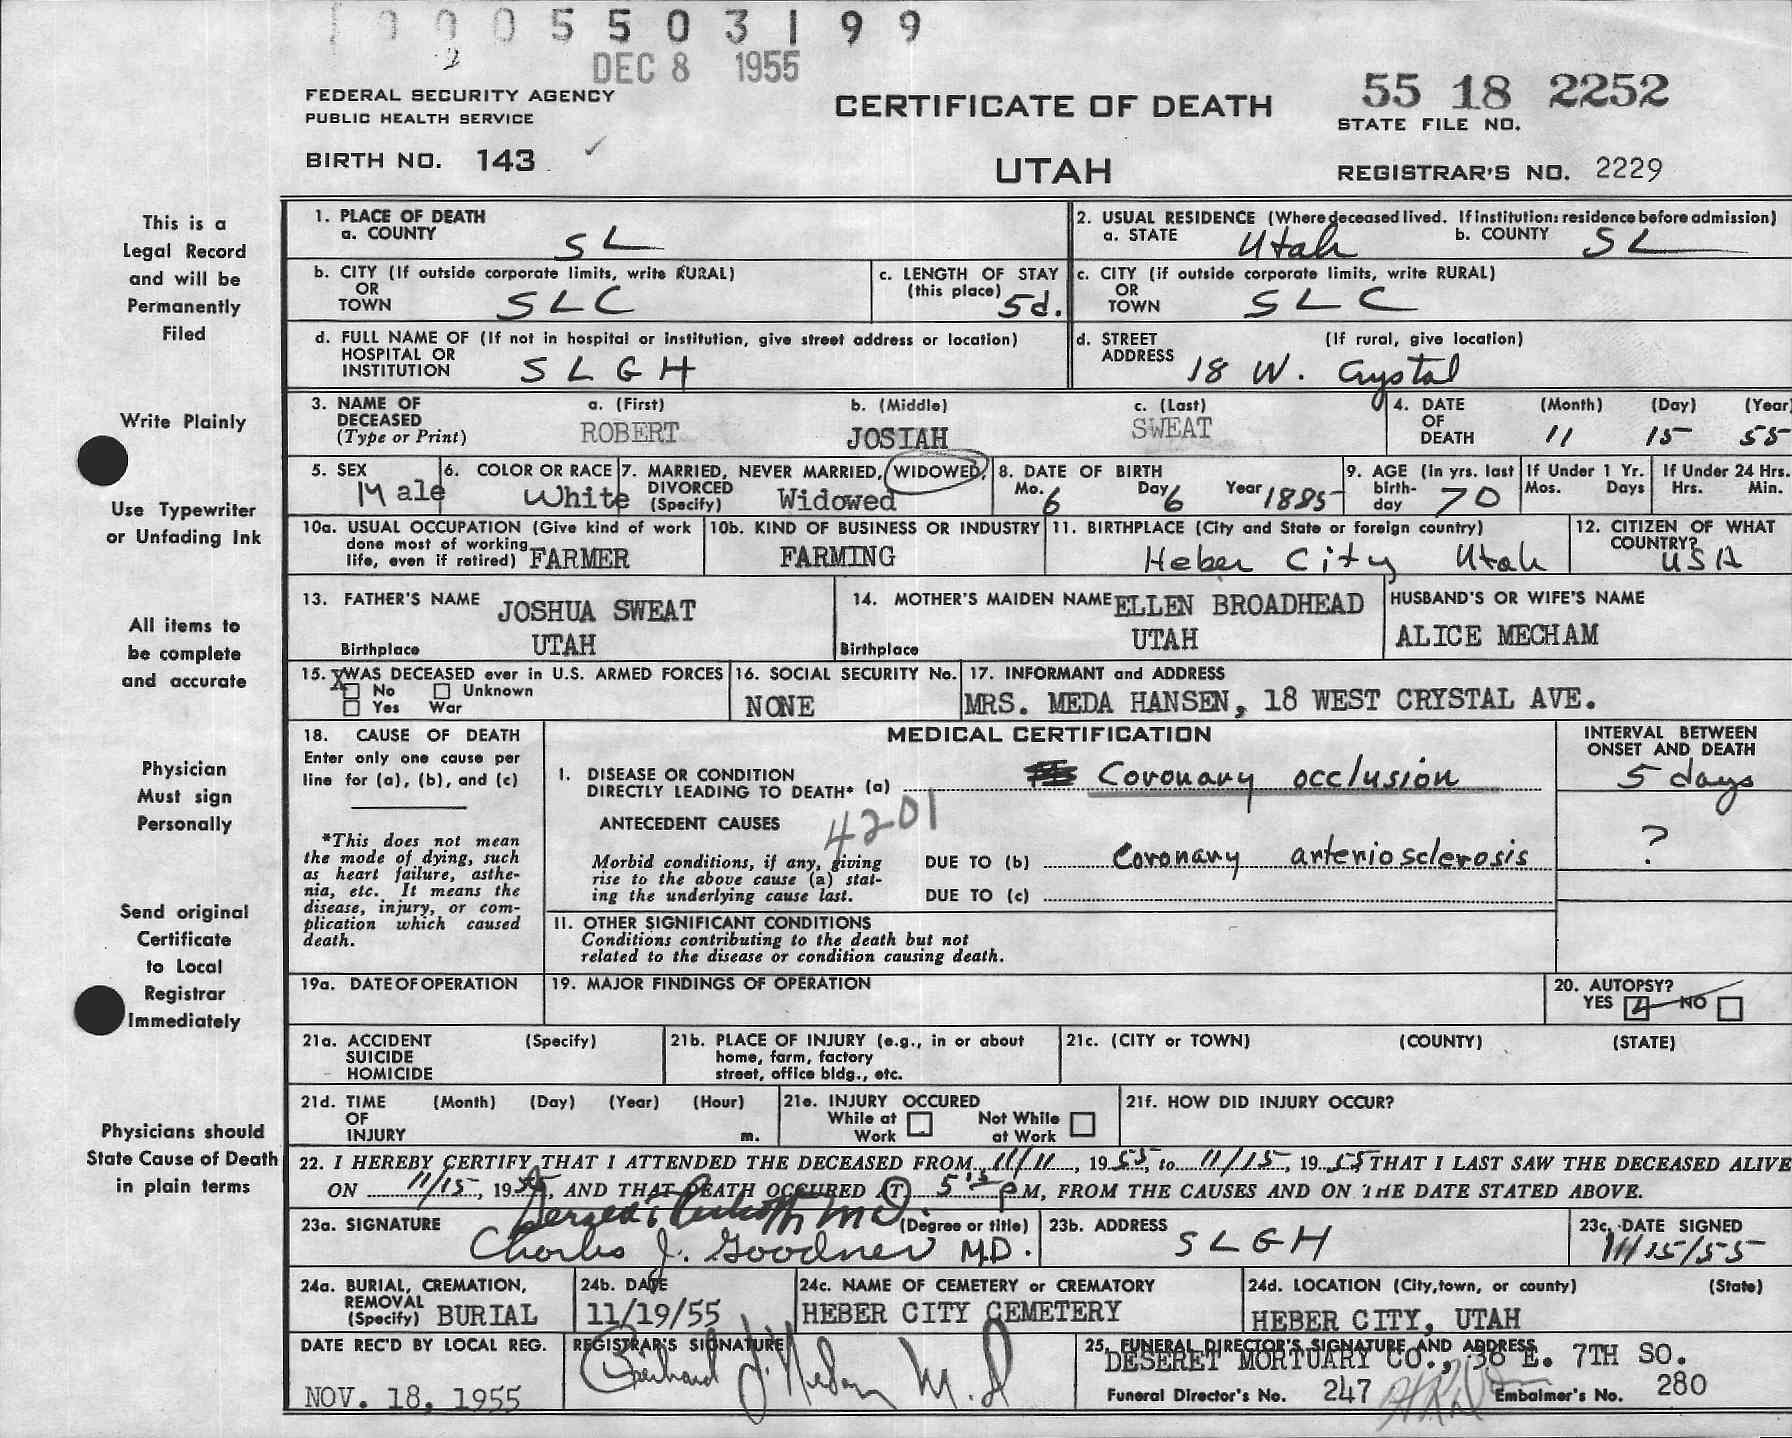 1 0 0 0 5 5 0 3 1 9 9
2
DEC 8 1955
FEDERAL SECURITY AGENCY
PUBLIC HEALTH SERVICE
CERTIFICATE OF DEATH
55 18 2252
STATE FILE NO.
BIRTH NO. 143
UTAH
REGISTRAR'S NO. 2229
This is a
Legal Record
and will be
Permanently
Filed
Write Plainly
Use Typewriter
or Unfading Ink
All items to
be complete
and accurate
Physician
Must sign
Personally
Send original
Certificate
to Local
Registrar
Immediately
Physicians should
State Cause of Death
in plain terms
1. PLACE OF DEATH
a. COUNTY SL
2. USUAL RESIDENCE (Where deceased lived. If institution: residence before admission)
a. STATE Utah b. COUNTY SL
b. CITY (If outside corporate limits, write RURAL)
OR
TOWN SLC
c. LENGTH OF STAY
(this place) 5d.
c. CITY (if outside corporate limits, write RURAL)
OR
TOWN SLC
d. FULL NAME OF (If not in hospital or institution, give street address or location)
HOSPITAL OR
INSTITUTION SLGH
d. STREET (If rural, give location)
ADDRESS 18 W. Crystal
3. NAME OF
DECEASED
(Type or Print)
a. (First) b. (Middle) c. (Last)
ROBERT JOSIAH SWEAT
4. DATE (Month) (Day) (Year)
OF
DEATH 11 15 55
5. SEX
Male
6. COLOR OR RACE
White
7. MARRIED, NEVER MARRIED, WIDOWED,
DIVORCED
(Specify) Widowed
8. DATE OF BIRTH
Mo. 6 Day 6 Year 1885
9. AGE (In yrs. last
birth-
day 70
If Under 1 Yr.
Mos. Days
If Under 24 Hrs.
Hrs. Min.
10a. USUAL OCCUPATION (Give kind of work
done most of working
life, even if retired) FARMER
10b. KIND OF BUSINESS OR INDUSTRY
FARMING
11. BIRTHPLACE (City and State or foreign country)
Heber City Utah
12. CITIZEN OF WHAT
COUNTRY?
USA
13. FATHER'S NAME JOSHUA SWEAT
Birthplace UTAH
14. MOTHER'S MAIDEN NAME ELLEN BROADHEAD
Birthplace UTAH
HUSBAND'S OR WIFE'S NAME
ALICE MECHAM
15. WAS DECEASED ever in U.S. ARMED FORCES
X No Unknown
Yes War
16. SOCIAL SECURITY No.
NONE
17. INFORMANT and ADDRESS
MRS. MEDA HANSEN, 18 WEST CRYSTAL AVE.
18. CAUSE OF DEATH
Enter only one cause per
line for (a), (b), and (c)
*This does not mean
the mode of dying, such
as heart failure, asthe-
nia, etc. It means the
disease, injury, or com-
plication which caused
death.
MEDICAL CERTIFICATION
INTERVAL BETWEEN
ONSET AND DEATH
I. DISEASE OR CONDITION
DIRECTLY LEADING TO DEATH* (a) Coronary occlusion 5 days
ANTECEDENT CAUSES 4201
Morbid conditions, if any, giving
rise to the above cause (a) stat-
ing the underlying cause last.
DUE TO (b) Coronary arteriosclerosis ?
DUE TO (c)
II. OTHER SIGNIFICANT CONDITIONS
Conditions contributing to the death but not
related to the disease or condition causing death.
19a. DATE OF OPERATION
19. MAJOR FINDINGS OF OPERATION
20. AUTOPSY?
YES NO
21a. ACCIDENT (Specify)
SUICIDE
HOMICIDE
21b. PLACE OF INJURY (e.g., in or about
home, farm, factory
street, office bldg., etc.
21c. (CITY or TOWN) (COUNTY) (STATE)
21d. TIME (Month) (Day) (Year) (Hour)
OF
INJURY m.
21e. INJURY OCCURED
While at Not While
Work at Work
21f. HOW DID INJURY OCCUR?
22. I HEREBY CERTIFY THAT I ATTENDED THE DECEASED FROM 11/11, 1955, to 11/15, 1955 THAT I LAST SAW THE DECEASED ALIVE
ON 11/15, 1955, AND THAT DEATH OCCURED AT 5 15 P M, FROM THE CAUSES AND ON THE DATE STATED ABOVE.
23a. SIGNATURE (Degree or title)
Charles J. Goodner M.D.
23b. ADDRESS SLGH
23c. DATE SIGNED
11/15/55
24a. BURIAL, CREMATION,
REMOVAL
(Specify) BURIAL
24b. DATE
11/19/55
24c. NAME OF CEMETERY or CREMATORY
HEBER CITY CEMETERY
24d. LOCATION (City, town, or county) (State)
HEBER CITY, UTAH
DATE REC'D BY LOCAL REG.
NOV. 18, 1955
REGISTRAR'S SIGNATURE
25. FUNERAL DIRECTOR'S SIGNATURE AND ADDRESS
DESERET MORTUARY CO., 36 E. 7TH SO.
Funeral Director's No. 247 Embalmer's No. 280